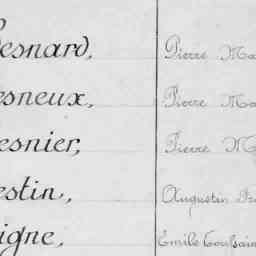 esnard, Pierre Ma
esneux, Pierre Ma
esnier, Pierre M
estin, Augustin
igne, Emile Toussain